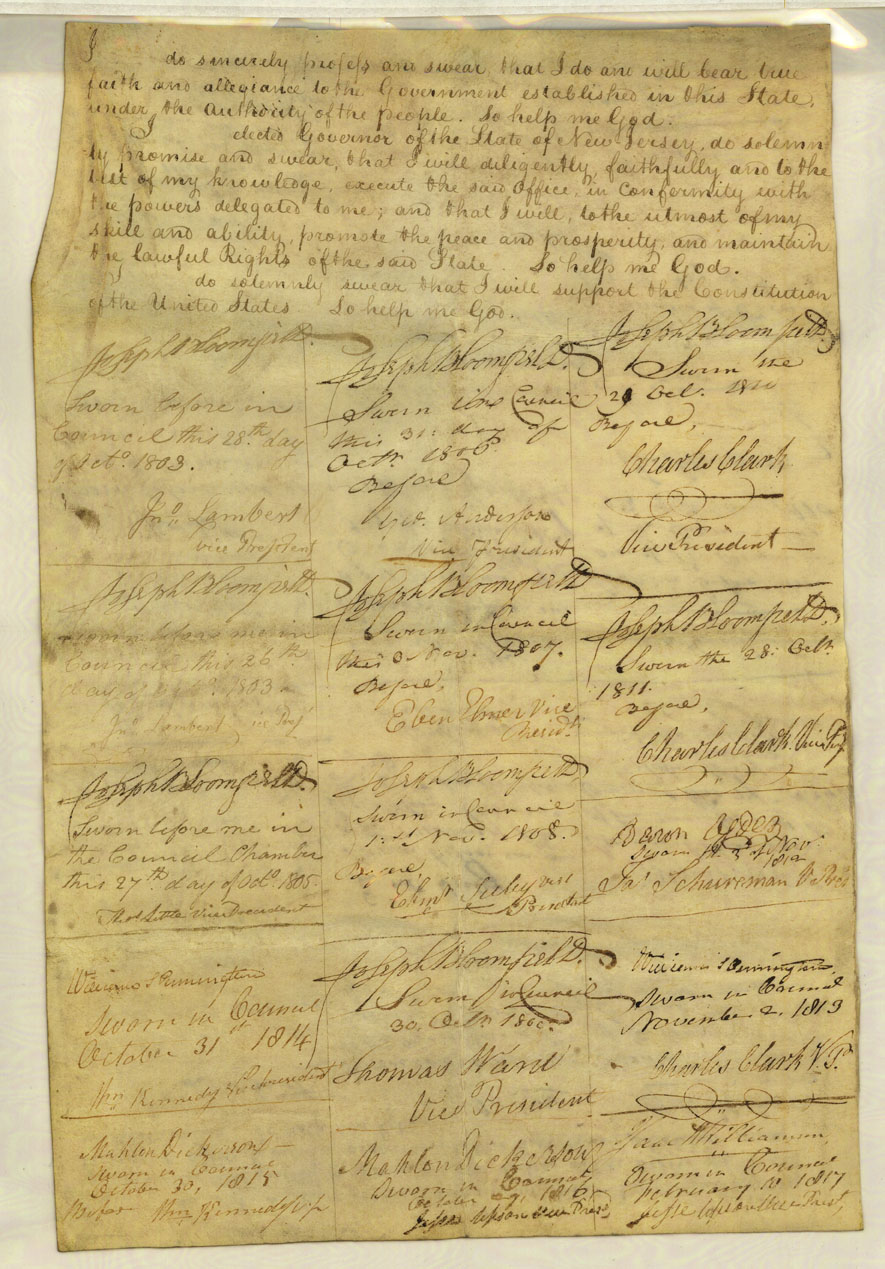 I
do sincerely profess and swear, that I do and will bear true
faith and allegiance to the Government established in this State,
under the Authority of the people. So help me God.
I elected Governor of the State of New Jersey, do solemn
ly promise and swear, that I will diligently, faithfully and to the
best of my knowledge, execute the said Office, in conformity with
the powers delegated to me; and that I will, to the utmost of my
skill and ability, promote the peace and prosperity, and maintain
the lawful Rights of the said State. So help me God.
do solemnly swear that I will support the Constitution
of the United States So help me God.
Joseph Bloomfield.
Sworn before in
Council this 28.th day
of Octo. 1803.
Jno. Lambert
Vice President
Joseph Bloomfield.
Sworn before me in
Council this 26th
day of
Jno. Lambert
Joseph Bloomfield.
Sworn before me in
the Council Chamber
this 27th day of Octo. 1805.
Thos Little Vice President
William S Pennington
Sworn in Council
October 31st 1814
Wm Kennedy Vice president
Mahlon Dickerson
Sworn in Council
October 30, 1815
Before Wm Kennedy V. p
Joseph Bloomfield.
Sworn in Council
this 31: day of
Octr. 1806
Before
Geo. Anderson
Vice President
Joseph Bloomfield
Sworn in Council
this Nov. 1807.
Before,
Eben Elmer Vice
Presidt.
Joseph Bloomfield
Sworn in Council
1.st Nov. 1808.
Before
Ebenr Seeley vice
President
Joseph Bloomfield.
Sworn in Council
30. Octr
Thomas Ward
Vice President
Mahlon Dickerson
Sworn in Council
October
Jesse Upson Vice Presd
Joseph Bloomfield.
Sworn the
29 Oct. 1810
Before,
Charles Clark
Vice President
Joseph Bloomfield.
Sworn the 28: Octr.
1811.
Before,
Charles Clark. Vice Pr
Aaron Ogden
Sworn Nov.
1812
Jas Schureman V Pres
William S Pennington
Sworn in Council
November 2, 1813
Charles Clark V. P.
Isaac H Williamson
Sworn in Council
February 1817
Jesse Upson Vice Prest,